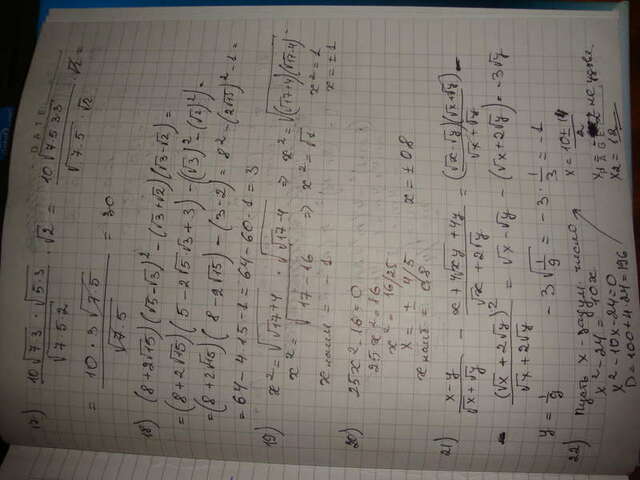 17) 10√7·3 · √5·3 / √7·5·2 · √2 = 10√7·5·3·3 / √7·5·√2 · √2 =
= 10·3√7·5 / √7·5 = 30
18) (8+2√15)(√5-√3)² - (√3+√2)(√3-√2) =
= (8+2√15)(5-2√5√3+3) - ((√3)²-(√2)²) =
= (8+2√15)(8-2√15) - (3-2) = 8²-(2√15)²-1 =
= 64-4·15-1 = 64-60-1 = 3
19) x² = √√17+4 · √√17-4 ⇒ x² = √(√17+4)(√17-4)
x² = √17-16 ⇒ x² = √1 x² = 1
x наим = -1 x = ±1
20) 25x²-16=0
25x²=16
x² = 16/25
x = ± 4/5 x = ± 0,8
x наиб = 0,8
21) x-y / √x+√y - x+4√xy+4y / √x+2√y = (√x-√y)(√x+√y) / √x+√y -
- (√x+2√y)² / √x+2√y = √x-√y - (√x+2√y) = -3√y
y = 1/9 - 3√1/9 = -3·1/3 = -1
22) Пусть x - задум. число
x²-24=10x
x²-10x-24=0
D=100+4·24=196
x = 10±14 / 2
x₂ = 12